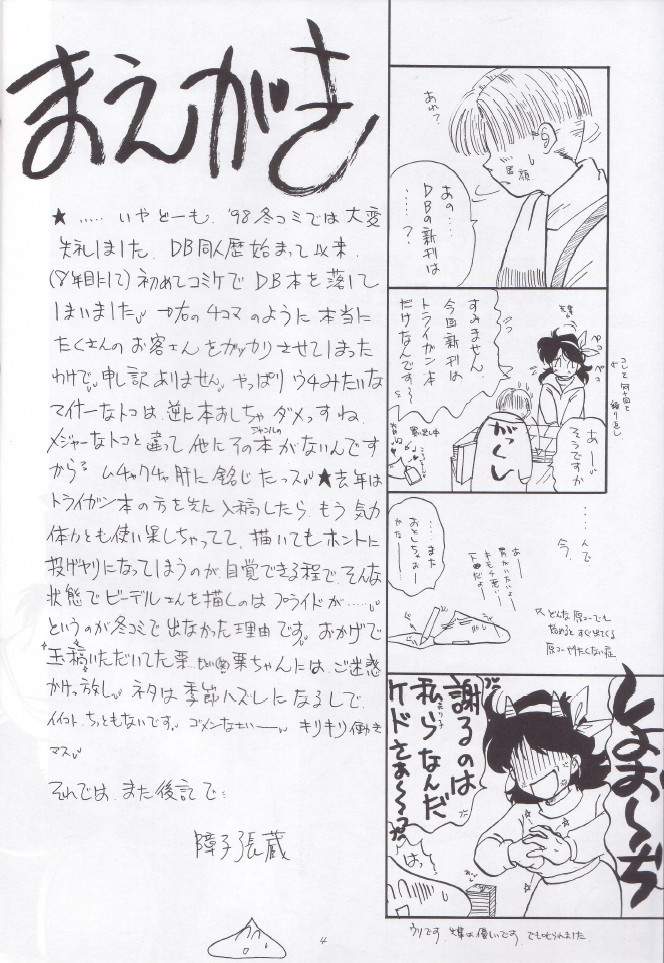 まえがき
★‥‥‥いやどーも、'98冬コミでは大変
失礼しました。DB同人歴始まって以来、
(8年目にして)初めてコミケでDB本を落して
しまいました。→右の4コマのように本当に
たくさんのお客さんをガッカリさせてしまった
わけで、申し訳ありません。やっぱりウチみたいな
マイナーなトコは、逆に本おしちゃダメっすね。
メジャーなトコと違って他にそのジャンルの本がないんです
から。ムチャクチャ肝に銘じたっス。★去年は
トライガン本の方を先に入稿したら、もう気力
体力とも使い果しちゃってて、描いてもホントに
投げヤリになってしまうのが、自覚できる程で、そんな
状態でビーデルさんを描くのはプライドが‥‥‥。
というのが冬コミで出なかった理由です。おかげで
玉稿いただいてた栗ちゃんには、ご迷惑
かけっ放し。ネタは季節ハズレになるしで、
イイコトちっともないです。ゴメンなさいー。キリキリ働き
マス。
それでは、また後記で‥
障子張蔵
あれ?
笑顔
あの‥‥
DBの新刊は
‥‥‥?
すみません、
今回新刊は
トライガン本
だけなんです〜
ペコ
ペコ
あーー
そうですか
がっくし
コレを何十回と
繰り返し
‥‥んで
今、
‥‥また
おとしちゃおー
かなーー
あー
胃がいたいよー
キモチ悪いー
どんな原コーでも
始めるとすぐ出てくる
原コーやりたくない症
しょおーぢ
謝るのは
私らなんだ
ケドさぁ〜〜
はっ
ウソです。先輩は優しいです。でも叱られました。
4